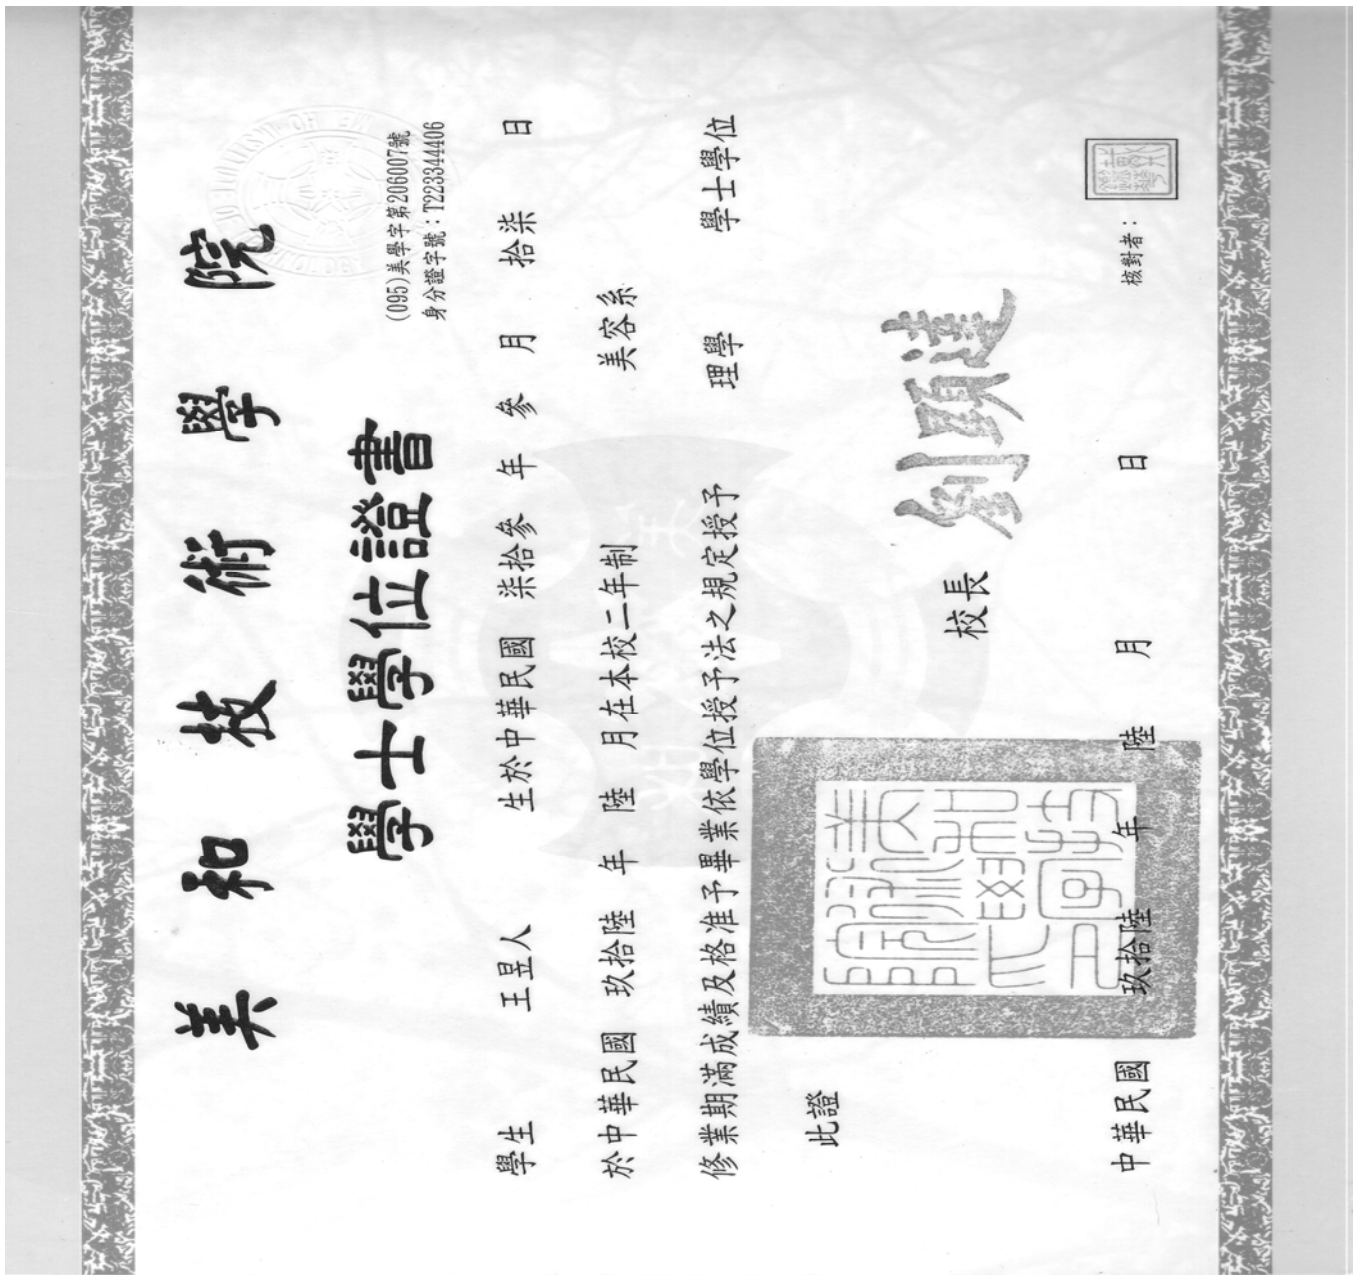 美和技術學院
學士學位證書
(095)美學字第206007號
身分證字號：T223344406
學生 王昱人 生於中華民國 柒拾參 年 參 月 拾柒 日
於中華民國 玖拾陸 年 陸 月在本校二年制 美容系
修業期滿成績及格准予畢業依學位授予法之規定授予 理學 學士學位
此證
校長 劉顯達
中華民國 玖拾陸 年 陸 月 日
核對者：